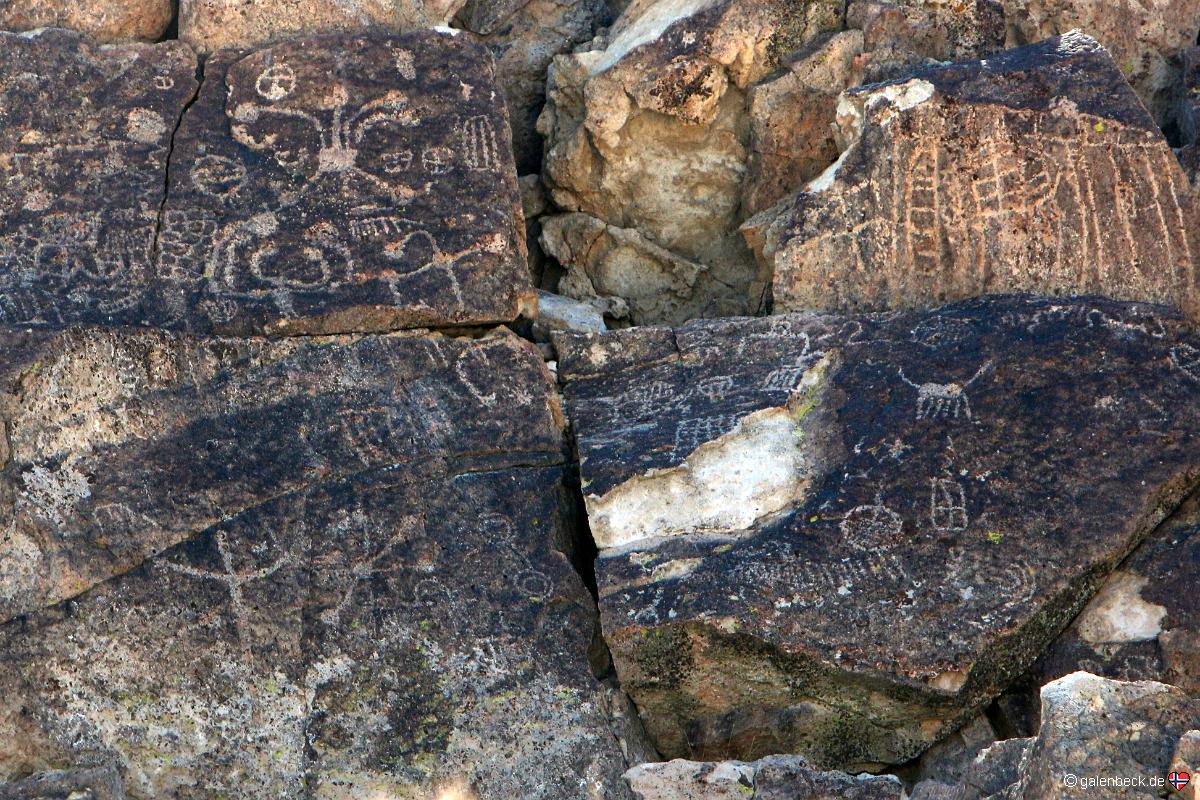 © galenbeck.de